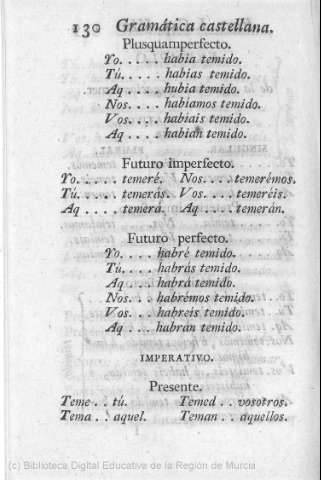 130 Gramática castellana.
Plusquamperfecto.
Yo. . . . . habia temido.
Tú. . . . . habias temido.
Aq . . . . hubia temido.
Nos. . . . habiamos temido.
Vos. . . . habiais temido.
Aq . . . . habian temido.
Futuro imperfecto.
Yo. . . . . temeré. Nos. . . . temerémos.
Tú. . . . . temerás. Vos. . . . temeréis.
Aq . . . . temerá. Aq . . . . temerán.
Futuro perfecto.
Yo. . . . habré temido.
Tú. . . . habrás temido.
Aq . . . habrá temido.
Nos. . . habrémos temido.
Vos. . . habreis temido.
Aq . . . habrán temido.
IMPERATIVO.
Presente.
Teme . . tú. Temed . . vosotros.
Tema . . aquel. Teman . . aquellos.
(c) Biblioteca Digital Educativa de la Región de Murcia